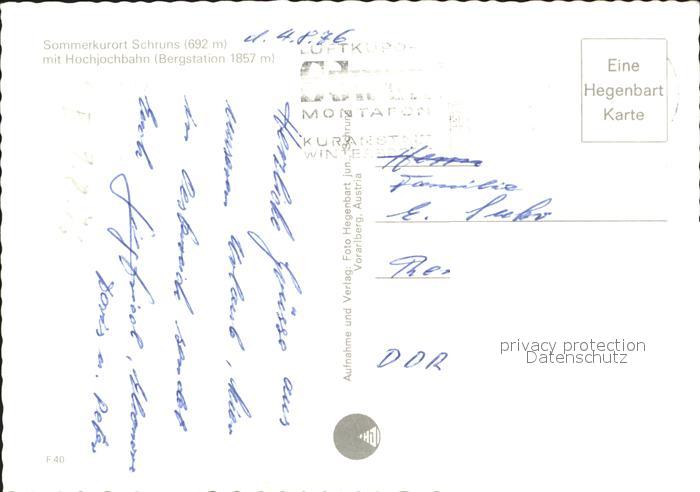 Sommerkurort Schruns (692 m)
mit Hochjochbahn (Bergstation 1857 m)
d. 4.8.76
LUFTKURO
MONTAFON
KURANSTALT
WINTERSPO
Eine
Hegenbart
Karte
Herzliche Grüsse aus
unserem Urlaub, hier
in Österreich sendet
Euch
Siegfried,
Doris u. Peter
Aufnahme und Verlag: Foto Hegenbart jun., Schruns
Vorarlberg, Austria
Familie
E.
DDR
privacy protection
Datenschutz
F 40